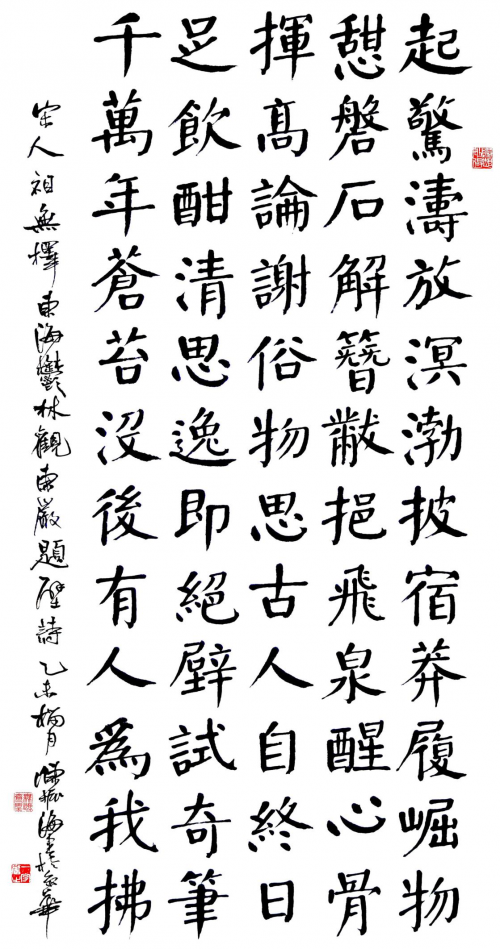 起驚濤放溟渤披宿莽履崛物
憇磐石解簪黻挹飛泉醒心骨
揮高論謝俗物思古人自終日
足飲酣清思逸即絕壁試奇筆
千萬年蒼苔没後有人為我拂
宋人祖無擇東海鬱林觀東巖題壁詩乙未月海京華